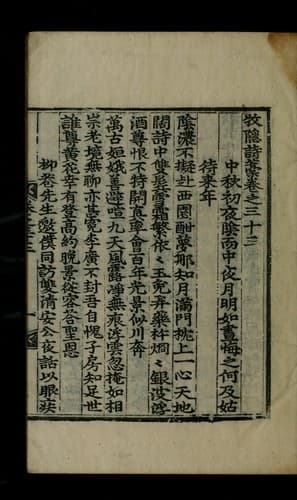 牧隱詩藁卷之三十三
中秋初夜陰雨中夜月明如晝悔之何及姑
待來年
陰濃不擬赴西園酣夢那知月滿門枕上一心天地
闊詩中雙鬢雪霜繁依〻玉兔弄藥杵炯〻銀波湧
酒尊恨不持開眞率會百年光景似川奔
萬古姮娥善避喧九天風露淨無痕浮雲忽掩如相
崇老境無聊亦甚寃李廣不封吾自愧子房知足世
誰尊黃花幸有登高約晚景從容荅聖恩
柳巷先生邀僕同訪雙清安公夜話以眼疾